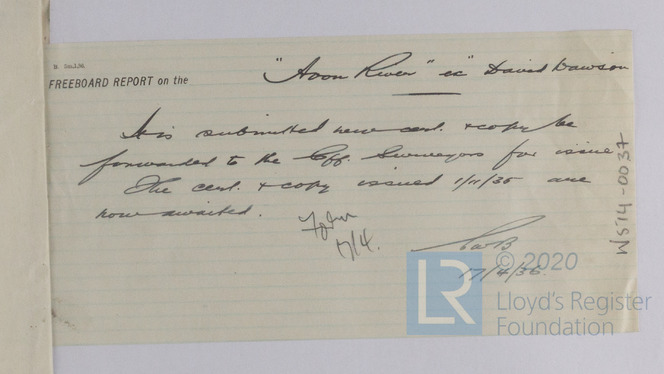 FREEBOARD REPORT on the
"Avon River" ex "David Dawson
It is submitted new cert. + copy be
forwarded to the Surveyors for issue
The cert. + copy issued 1/11/35 are
now awaited.
17/4.
17/4/36
W514-0037
LR
© 2020
Lloyd's Register
Foundation